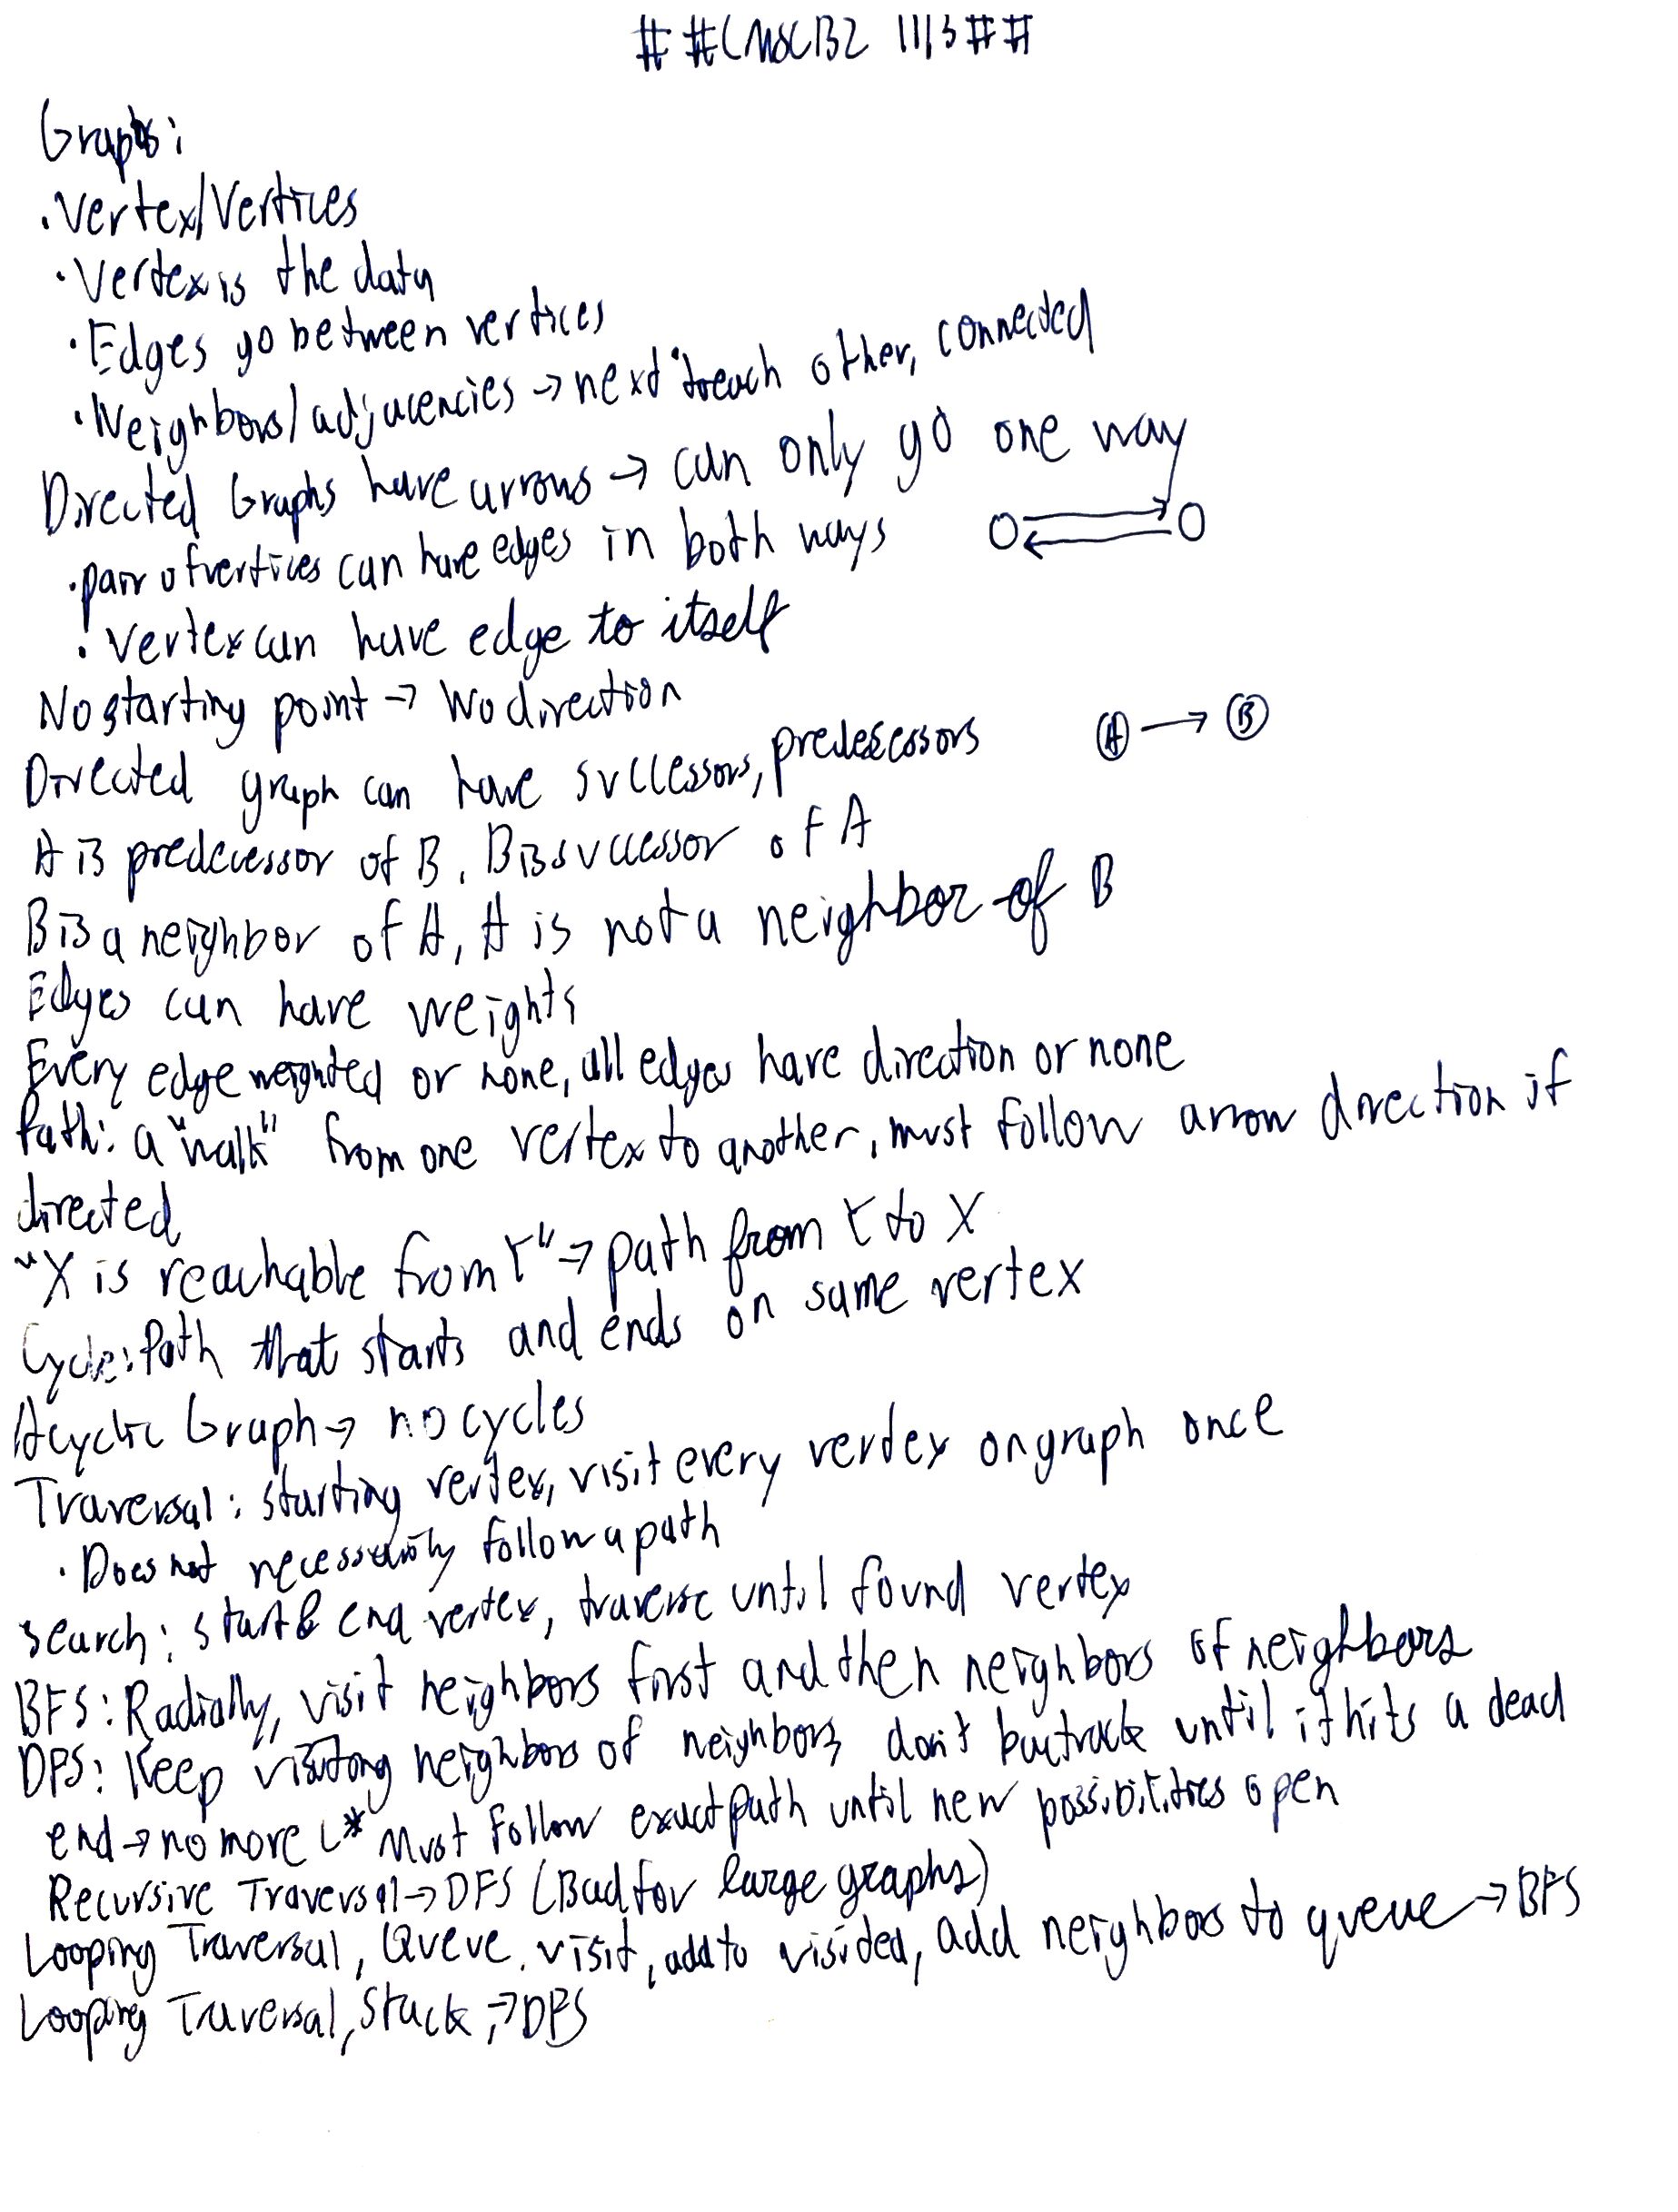 ##CMSC132 11/3##
Graphs:
·Vertex/Vertices
·Vertex is the data
·Edges go between vertices
·Neighbors/adjacencies → next to each other, connected
Directed Graphs have arrows → can only go one way
·pair of vertices can have edges in both ways
·Vertex can have edge to itself
No starting point → No direction
Directed graph can have successors, predecessors
A → B
A is predecessor of B, B is successor of A
B is a neighbor of A, A is not a neighbor of B
Edges can have weights
Every edge weighted or none, all edges have direction or none
Path: a "walk" from one vertex to another, must follow arrow direction if
directed
"X is reachable from Y" → path from Y to X
Cycle: Path that starts and ends on same vertex
Acyclic Graph → no cycles
Traversal: starting vertex, visit every vertex on graph once
·Does not necessarily follow a path
Search: start & end vertex, traverse until found vertex
BFS: Radially, visit neighbors first and then neighbors of neighbors
DFS: Keep visiting neighbors of neighbors, don't backtrack until it hits a dead
end → no more * Must follow exact path until new possibilities open
Recursive Traversal → DFS (Bad for large graphs)
Looping Traversal, Queue, visit, add to visited, add neighbors to queue → BFS
Looping Traversal, Stack, → DFS